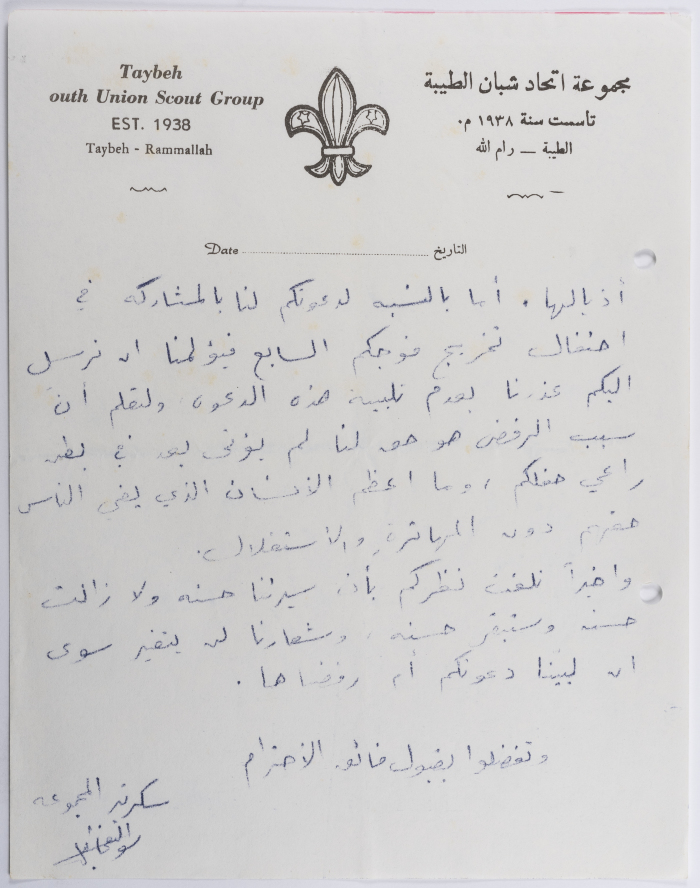 Taybeh
outh Union Scout Group
EST. 1938
Taybeh - Rammallah
مجموعة اتحاد شبان الطيبة
تأسست سنة ١٩٣٨ م.
الطيبة — رام الله
Date ........ التاريخ
أذيالها . أما بالنسبه لدعوتكم لنا بالمشاركه في
احتفال تخريج فوجكم السابع فيؤلمنا ان نرسل
اليكم عذرنا بعدم تلبية هذه الدعوه وليعلم أن
سبب الرفض هو حق لنا لم يؤتى بعد في
راعي حفلكم ، وما اعظم الانسان الذي يفي الناس
حقهم دون المهاترة والاستغلال .
واخيراً نلفت نظركم بأن سيرتنا حسنه ولا زالت
حسنه وستبقى حسنه ، وشعارنا لن يتغير سوى
ان لبينا دعوتكم أم رفضناها .
وتفضلوا بقبول فائق الاحترام
سكرتير المجموعه